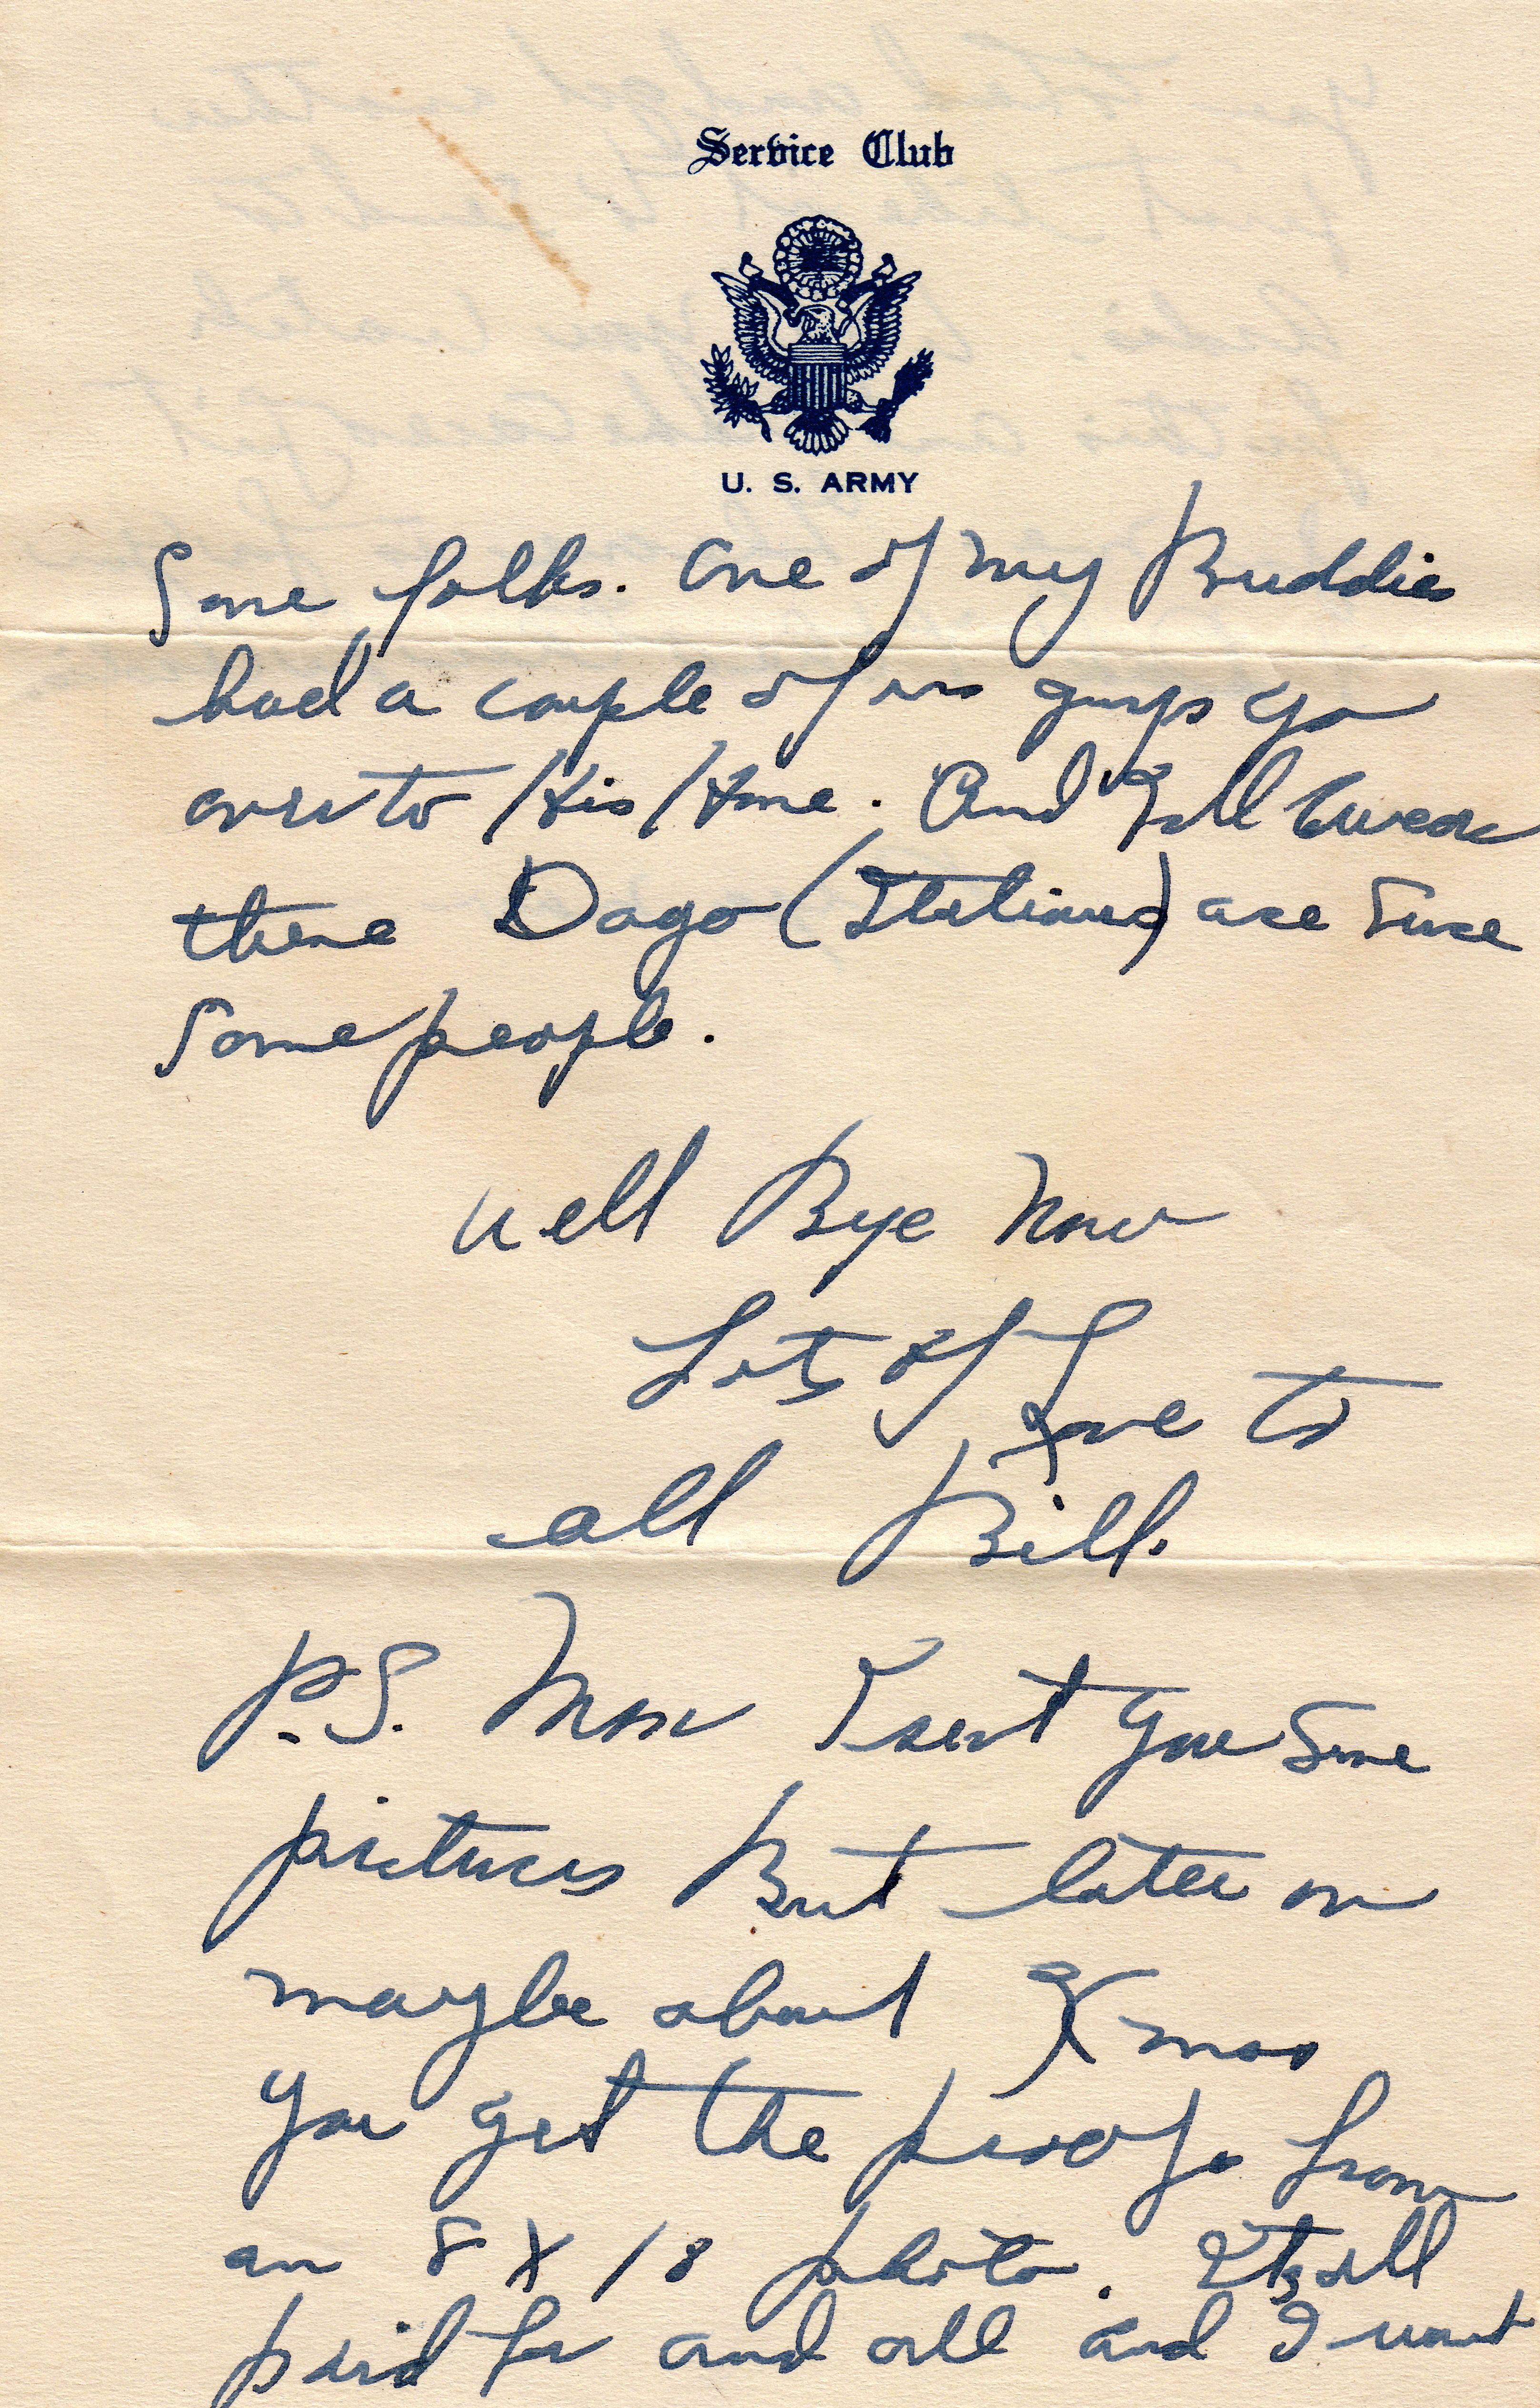 Service Club
U. S. ARMY
Some folks. One of my Buddies
had a couple of us guys go
over to His Home. And I'll swear
these Dago (Italians) are sure
Some people.
Well Bye Now
Lots of Love to
all Bill.
P.S. Mom I sent you some
pictures But later on
maybe about Xmas
you get the proofs from
an 8 X 10 photo. Its all
paid for and all and I want